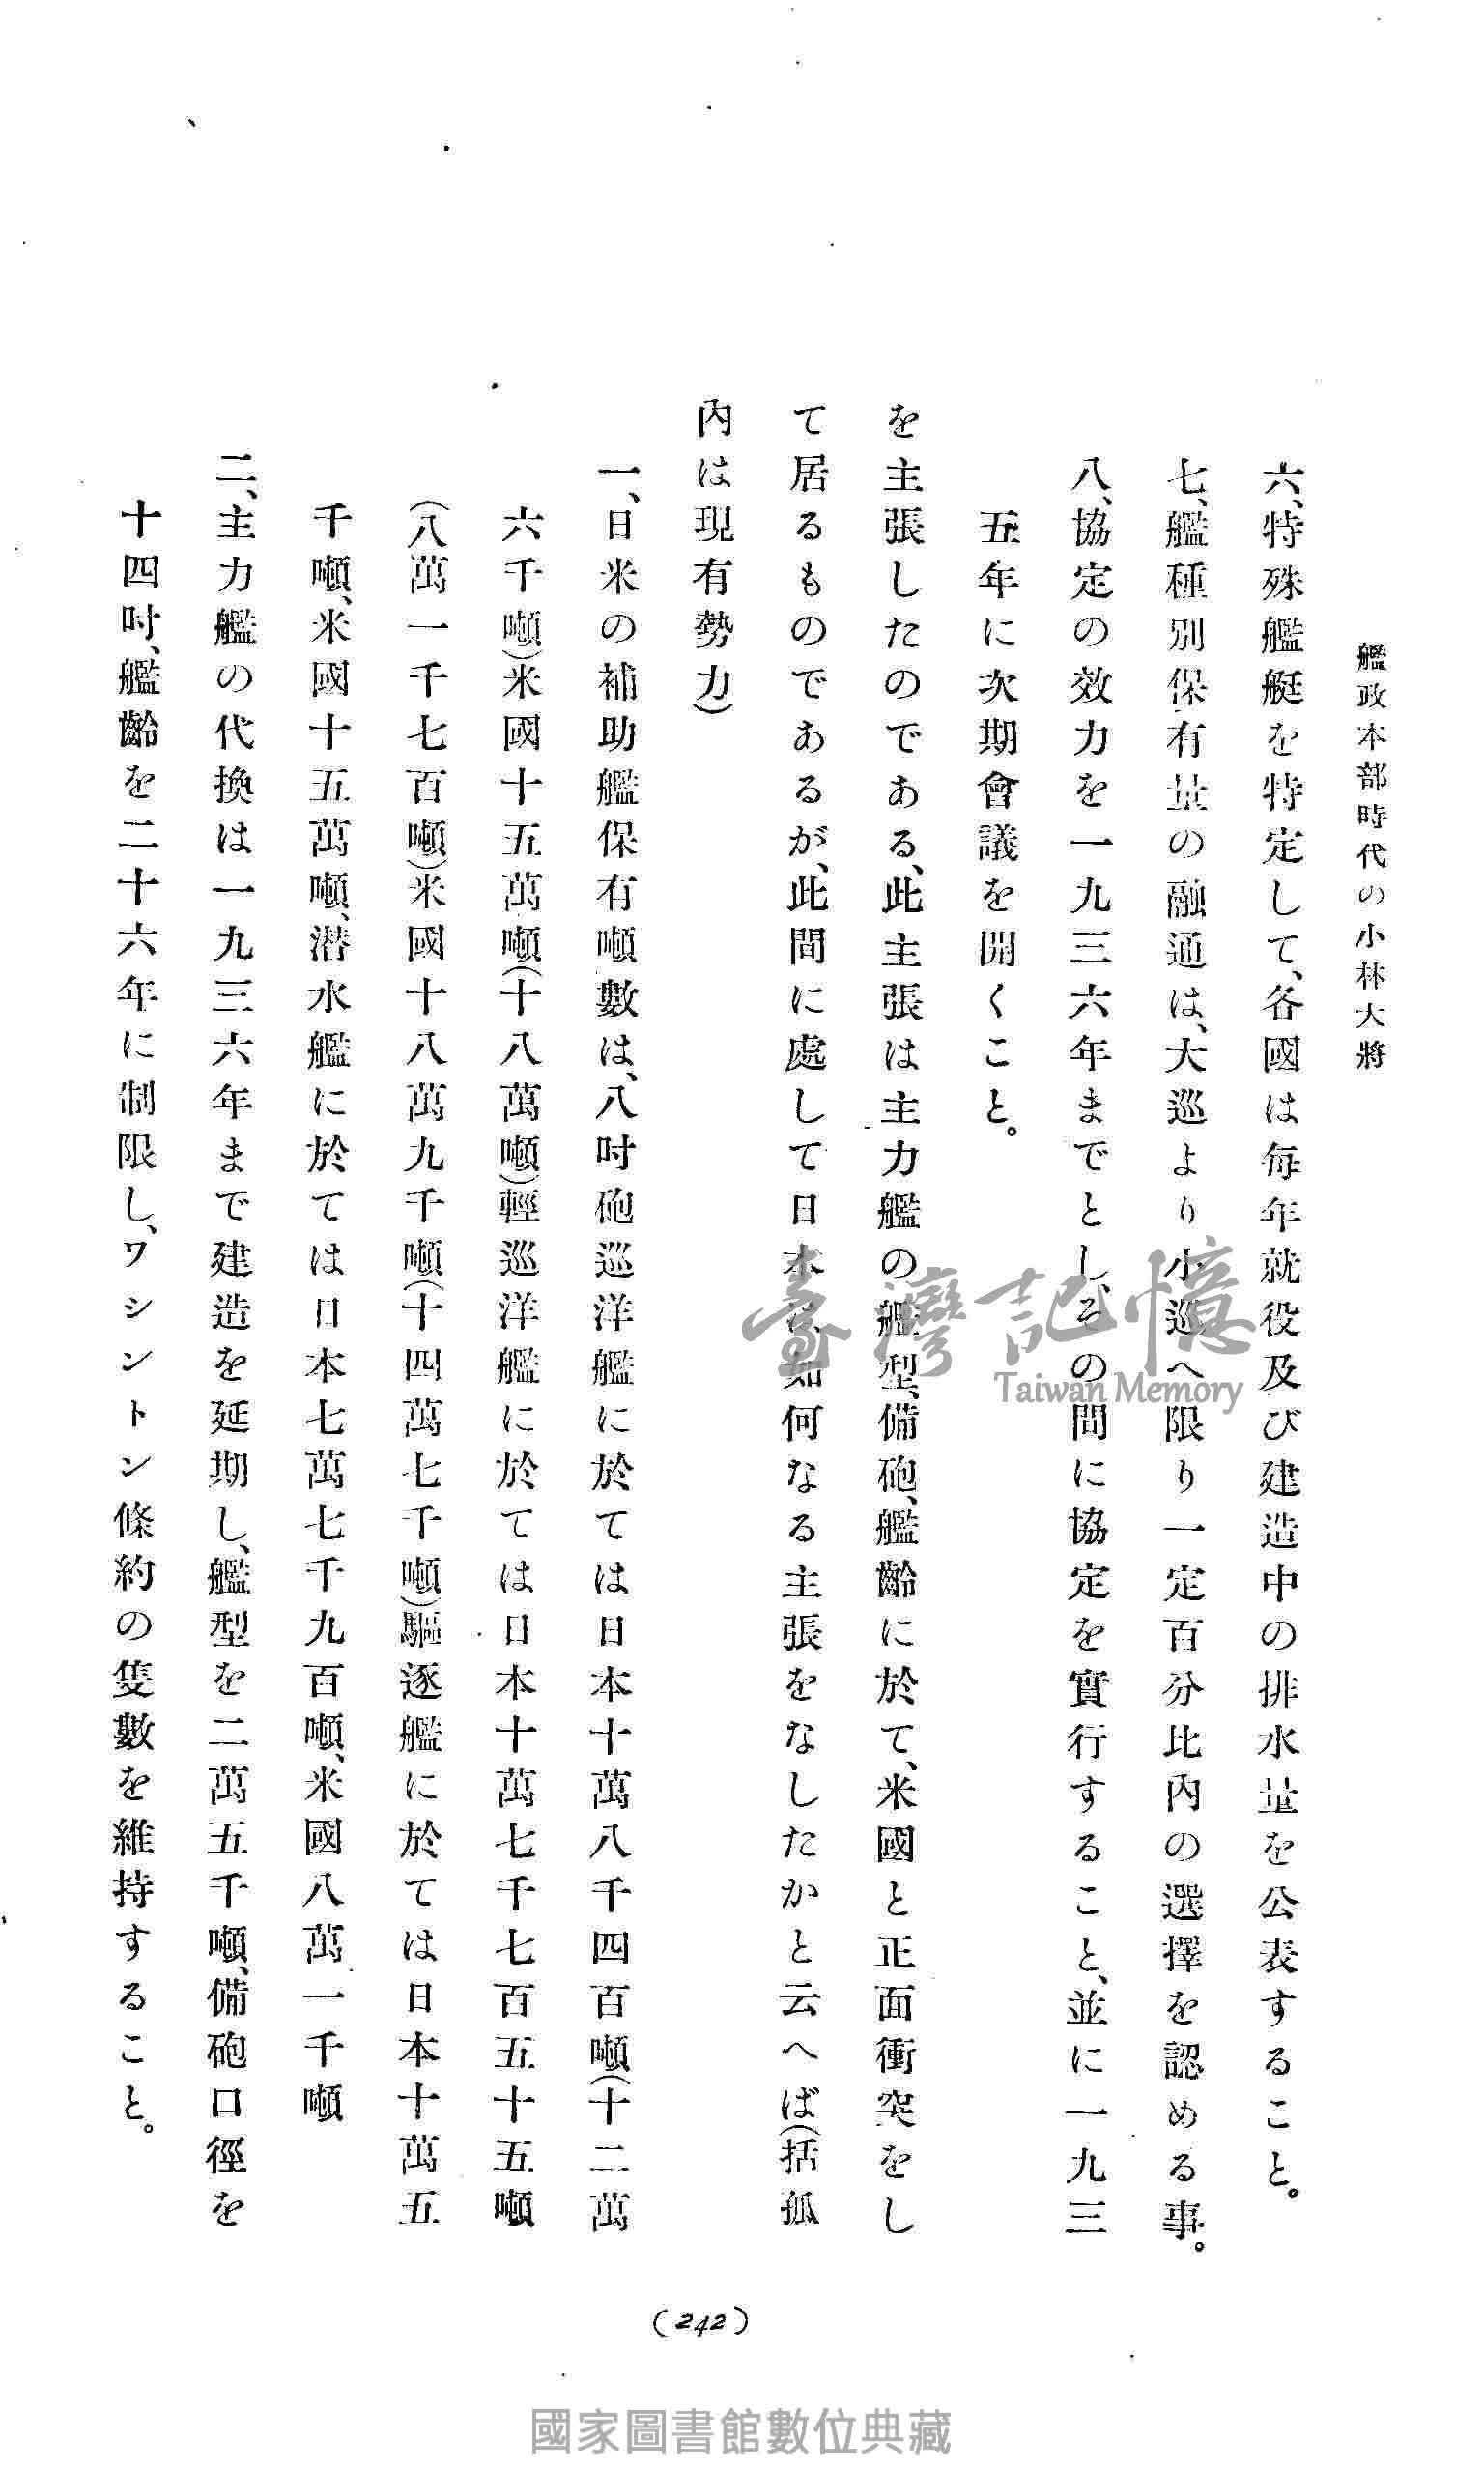 艦政本部時代の小林大將
六、特殊艦艇を特定して、各國は每年就役及び建造中の排水量を公表すること。
七、艦種別保有量の融通は、大巡より小巡へ限り一定百分比內の選擇を認める事。
八、協定の效力を一九三六年までとし、その間に協定を實行すること、並に一九三
五年に次期會議を開くこと。
を主張したのである、此主張は主力艦の艦型、備砲、艦齡に於て、米國と正面衝突をし
て居るものであるが、此間に處して日本は如何なる主張をなしたかと云へば(括孤
內は現有勢力)
一、日米の補助艦保有噸數は、八吋砲巡洋艦に於ては日本十萬八千四百噸(十二萬
六千噸)米國十五萬噸(十八萬噸)輕巡洋艦に於ては日本十萬七千七百五十五噸
(八萬一千七百噸)米國十八萬九千噸(十四萬七千噸)驅逐艦に於ては日本十萬五
千噸、米國十五萬噸、潛水艦に於ては日本七萬七千九百噸、米國八萬一千噸
二、主力艦の代換は一九三六年まで建造を延期し、艦型を二萬五千噸、備砲口徑を
十四吋、艦齡を二十六年に制限し、ワシントン條約の隻數を維持すること。
(242)
臺灣記憶
Taiwan Memory
國家圖書館數位典藏